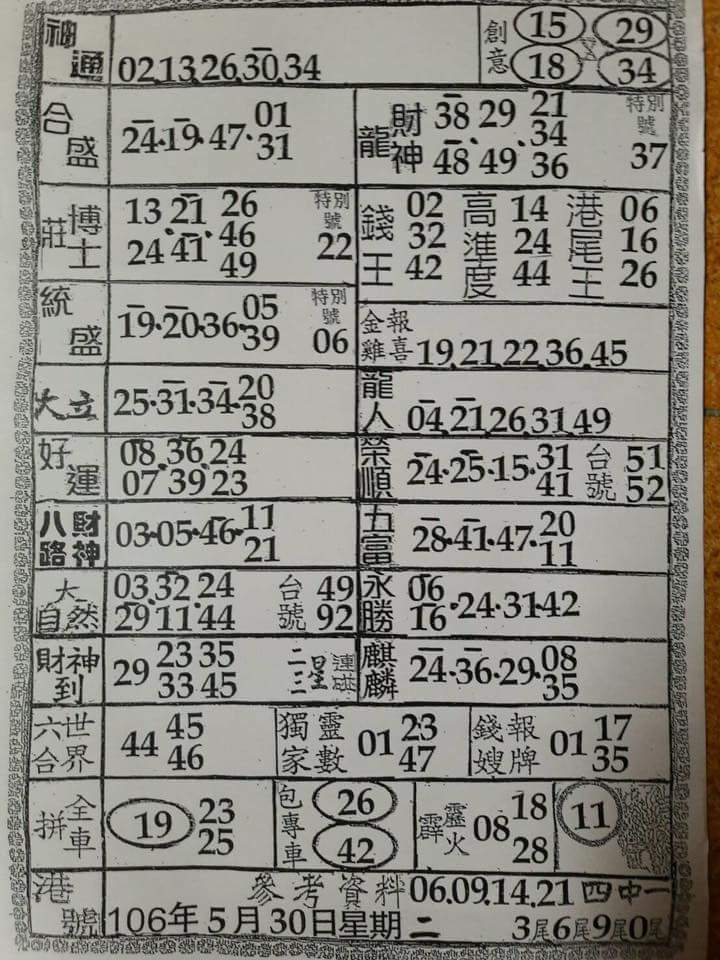 神通 02,13,26,30,34
創意 15 29
18 34
合盛 24·19·47·01
31
財神龍 38 29 21
34
48 49 36
特別號 37
莊博士 13 21 26
46
24 41 49
特別號 22
錢王 02 32 42
高進度 14 24 44
港尾王 06 16 26
統盛 19·20·36·05
39
特別號 06
金雞報喜 19,21,22,36,45
大立 25·31·34·20
38
龍人 04,21,26,31,49
好運 08,36,24
07 39 23
榮順 24·25·15·31
41
台號 51
52
八路財神 03·05·46·11
21
五富 28·41·47·20
11
大自然 03,32,24
29 11 44
台號 49
92
永勝 06
16·24·31·42
財神到 29 23 35
33 45
二三星連碰
麒麟 24·36·29·08
35
六合世界 44 45
46
獨家靈數 01 23
47
錢嫂報牌 01 17
35
全車拼 19 23
25
包專車 26
42
霹靂火 08 18
28
11
港號 參考資料 06.09.14.21 四中一
106年5月30日星期二 3尾6尾9尾0尾